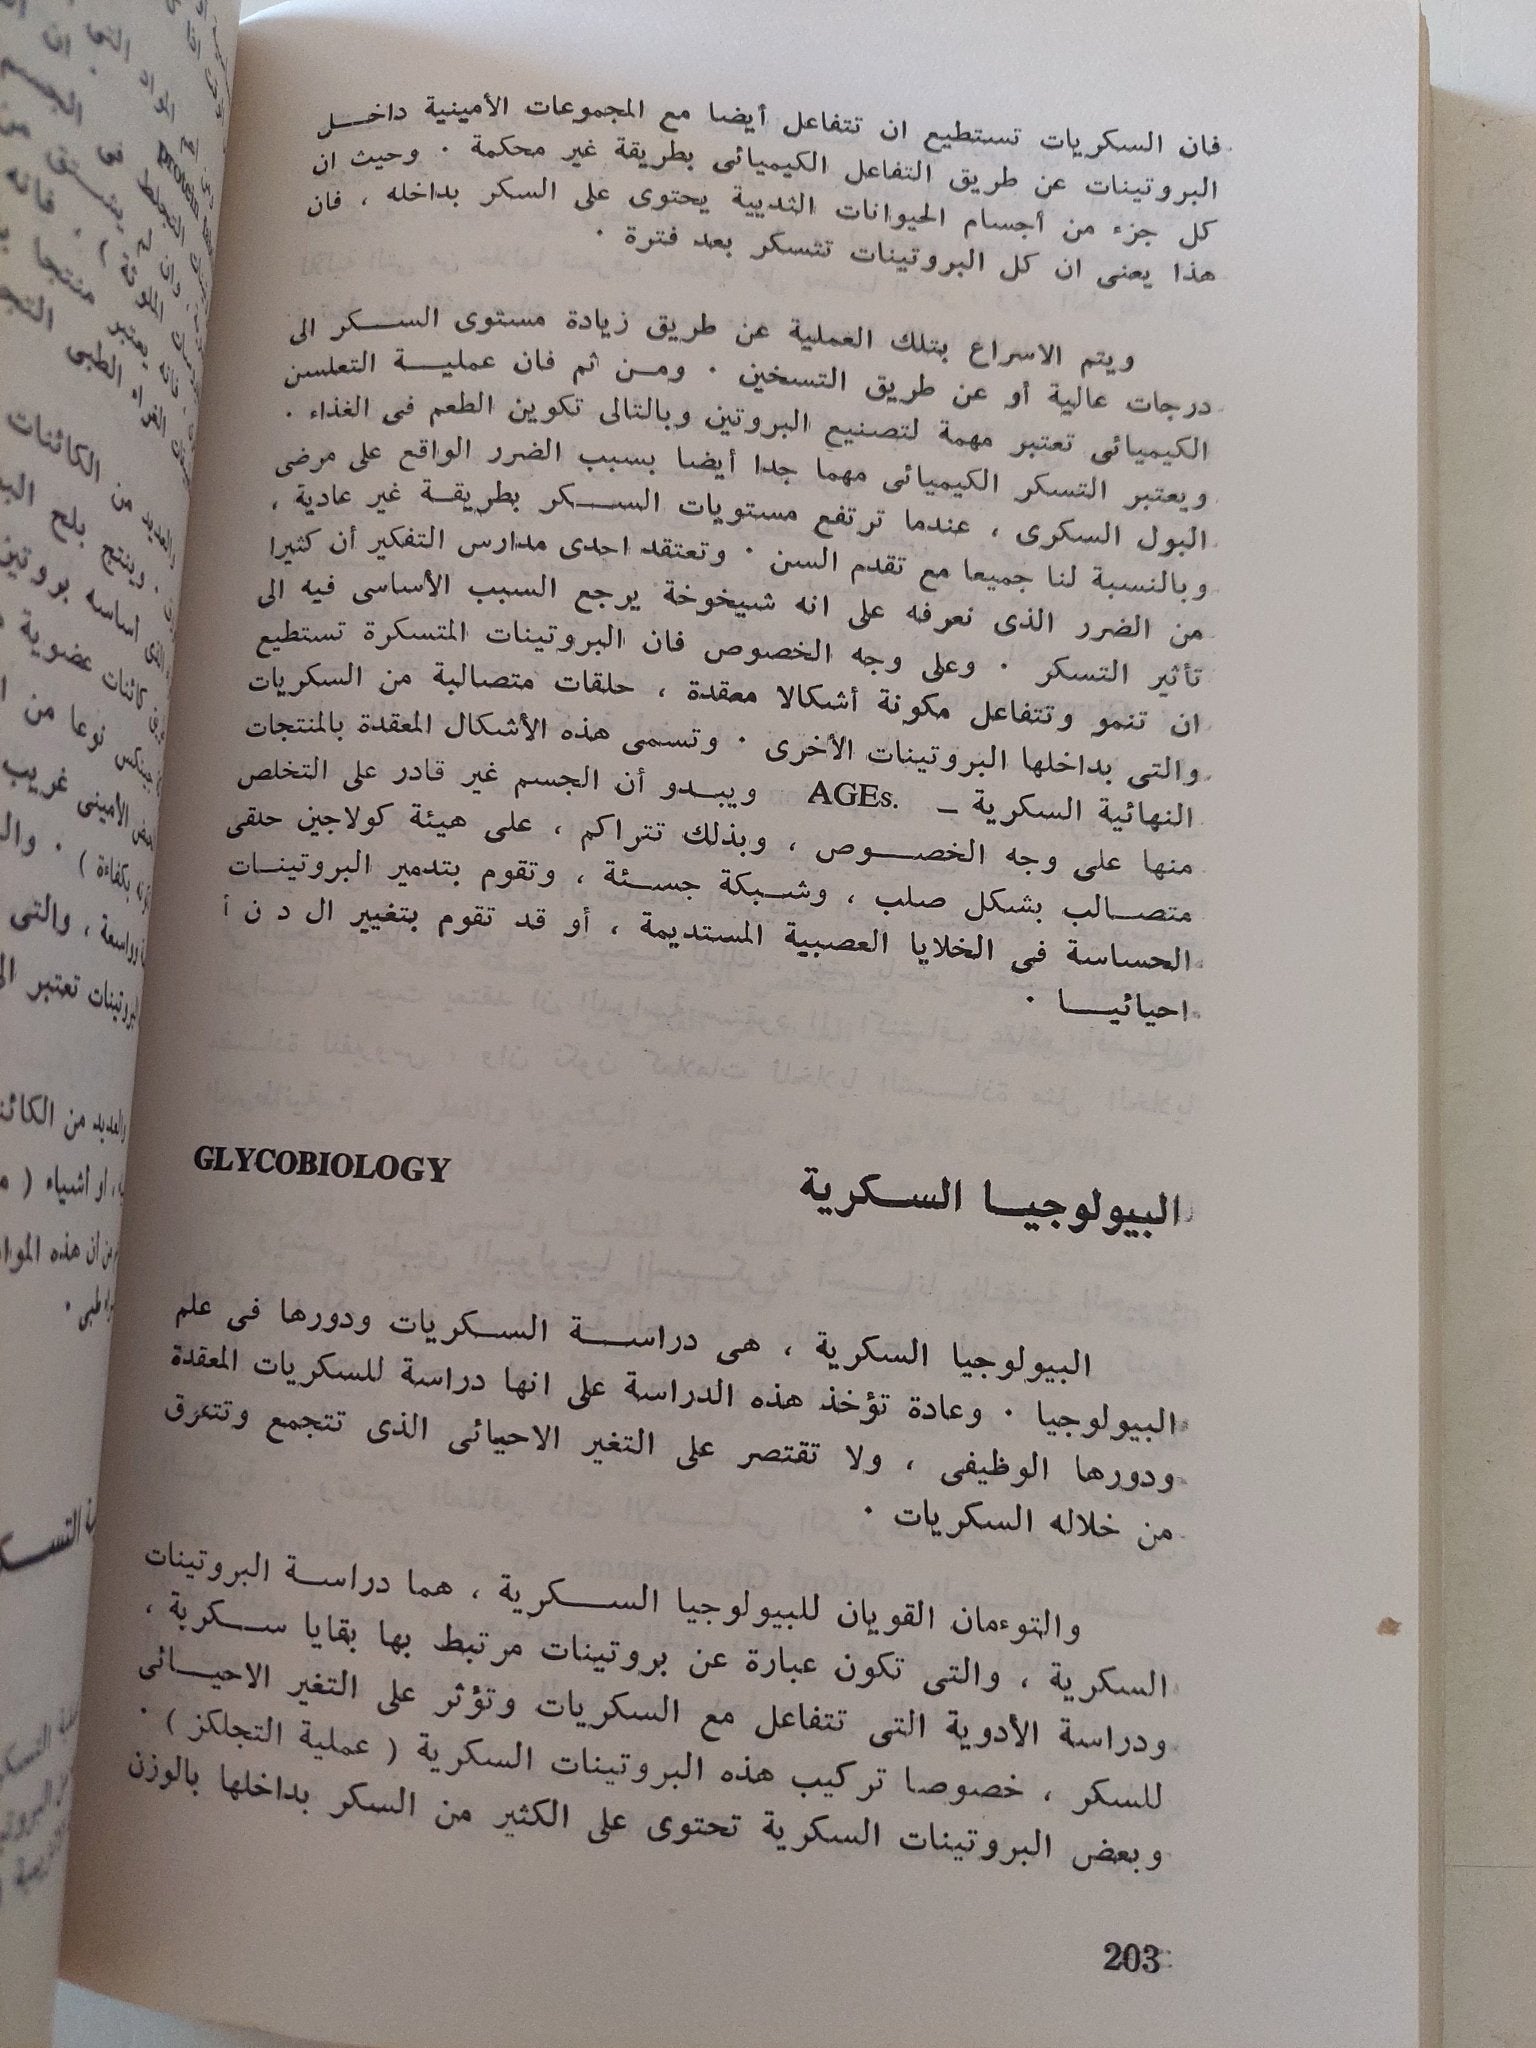 فان السكريات تستطيع ان تتفاعل أيضا مع المجموعات الأمينية داخل
البروتينات عن طريق التفاعل الكيميائى بطريقة غير محكمة . وحيث ان
كل جزء من أجسام الحيوانات الثديية يحتوى على السكر بداخله ، فان
هذا يعنى ان كل البروتينات تتسكر بعد فترة .
ويتم الاسراع بتلك العملية عن طريق زيادة مستوى السكر الى
درجات عالية أو عن طريق التسخين . ومن ثم فان عملية التعلسن
الكيميائى تعتبر مهمة لتصنيع البروتين وبالتالى تكوين الطعم فى الغذاء .
ويعتبر التسكر الكيميائى مهما جدا أيضا بسبب الضرر الواقع على مرضى
البول السكرى ، عندما ترتفع مستويات السكر بطريقة غير عادية ،
وبالنسبة لنا جميعا مع تقدم السن . وتعتقد احدى مدارس التفكير أن كثيرا
من الضرر الذى نعرفه على انه شيخوخة يرجع السبب الأساسى فيه الى
تأثير التسكر . وعلى وجه الخصوص فان البروتينات المتسكرة تستطيع
ان تنمو وتتفاعل مكونة أشكالا معقدة ، حلقات متصالبة من السكريات
والتى بداخلها البروتينات الأخرى . وتسمى هذه الأشكال المعقدة بالمنتجات
النهائية السكرية – AGEs. ويبدو أن الجسم غير قادر على التخلص
منها على وجه الخصوص ، وبذلك تتراكم ، على هيئة كولاجين حلقى
متصالب بشكل صلب ، وشبكة جسئة ، وتقوم بتدمير البروتينات
الحساسة فى الخلايا العصبية المستديمة ، أو قد تقوم بتغيير ال د ن أ
احيائيا .
البيولوجيا السكرية GLYCOBIOLOGY
البيولوجيا السكرية ، هى دراسة السكريات ودورها فى علم
البيولوجيا . وعادة تؤخذ هذه الدراسة على انها دراسة للسكريات المعقدة
ودورها الوظيفى ، ولا تقتصر على التغير الاحيائى الذى تتجمع وتتفرق
من خلاله السكريات .
والتوءمان القويان للبيولوجيا السكرية ، هما دراسة البروتينات
السكرية ، والتى تكون عبارة عن بروتينات مرتبط بها بقايا سكرية ،
ودراسة الأدوية التى تتفاعل مع السكريات وتؤثر على التغير الاحيائى
للسكر ، خصوصا تركيب هذه البروتينات السكرية ( عملية التجلكز ) .
وبعض البروتينات السكرية تحتوى على الكثير من السكر بداخلها بالوزن
203